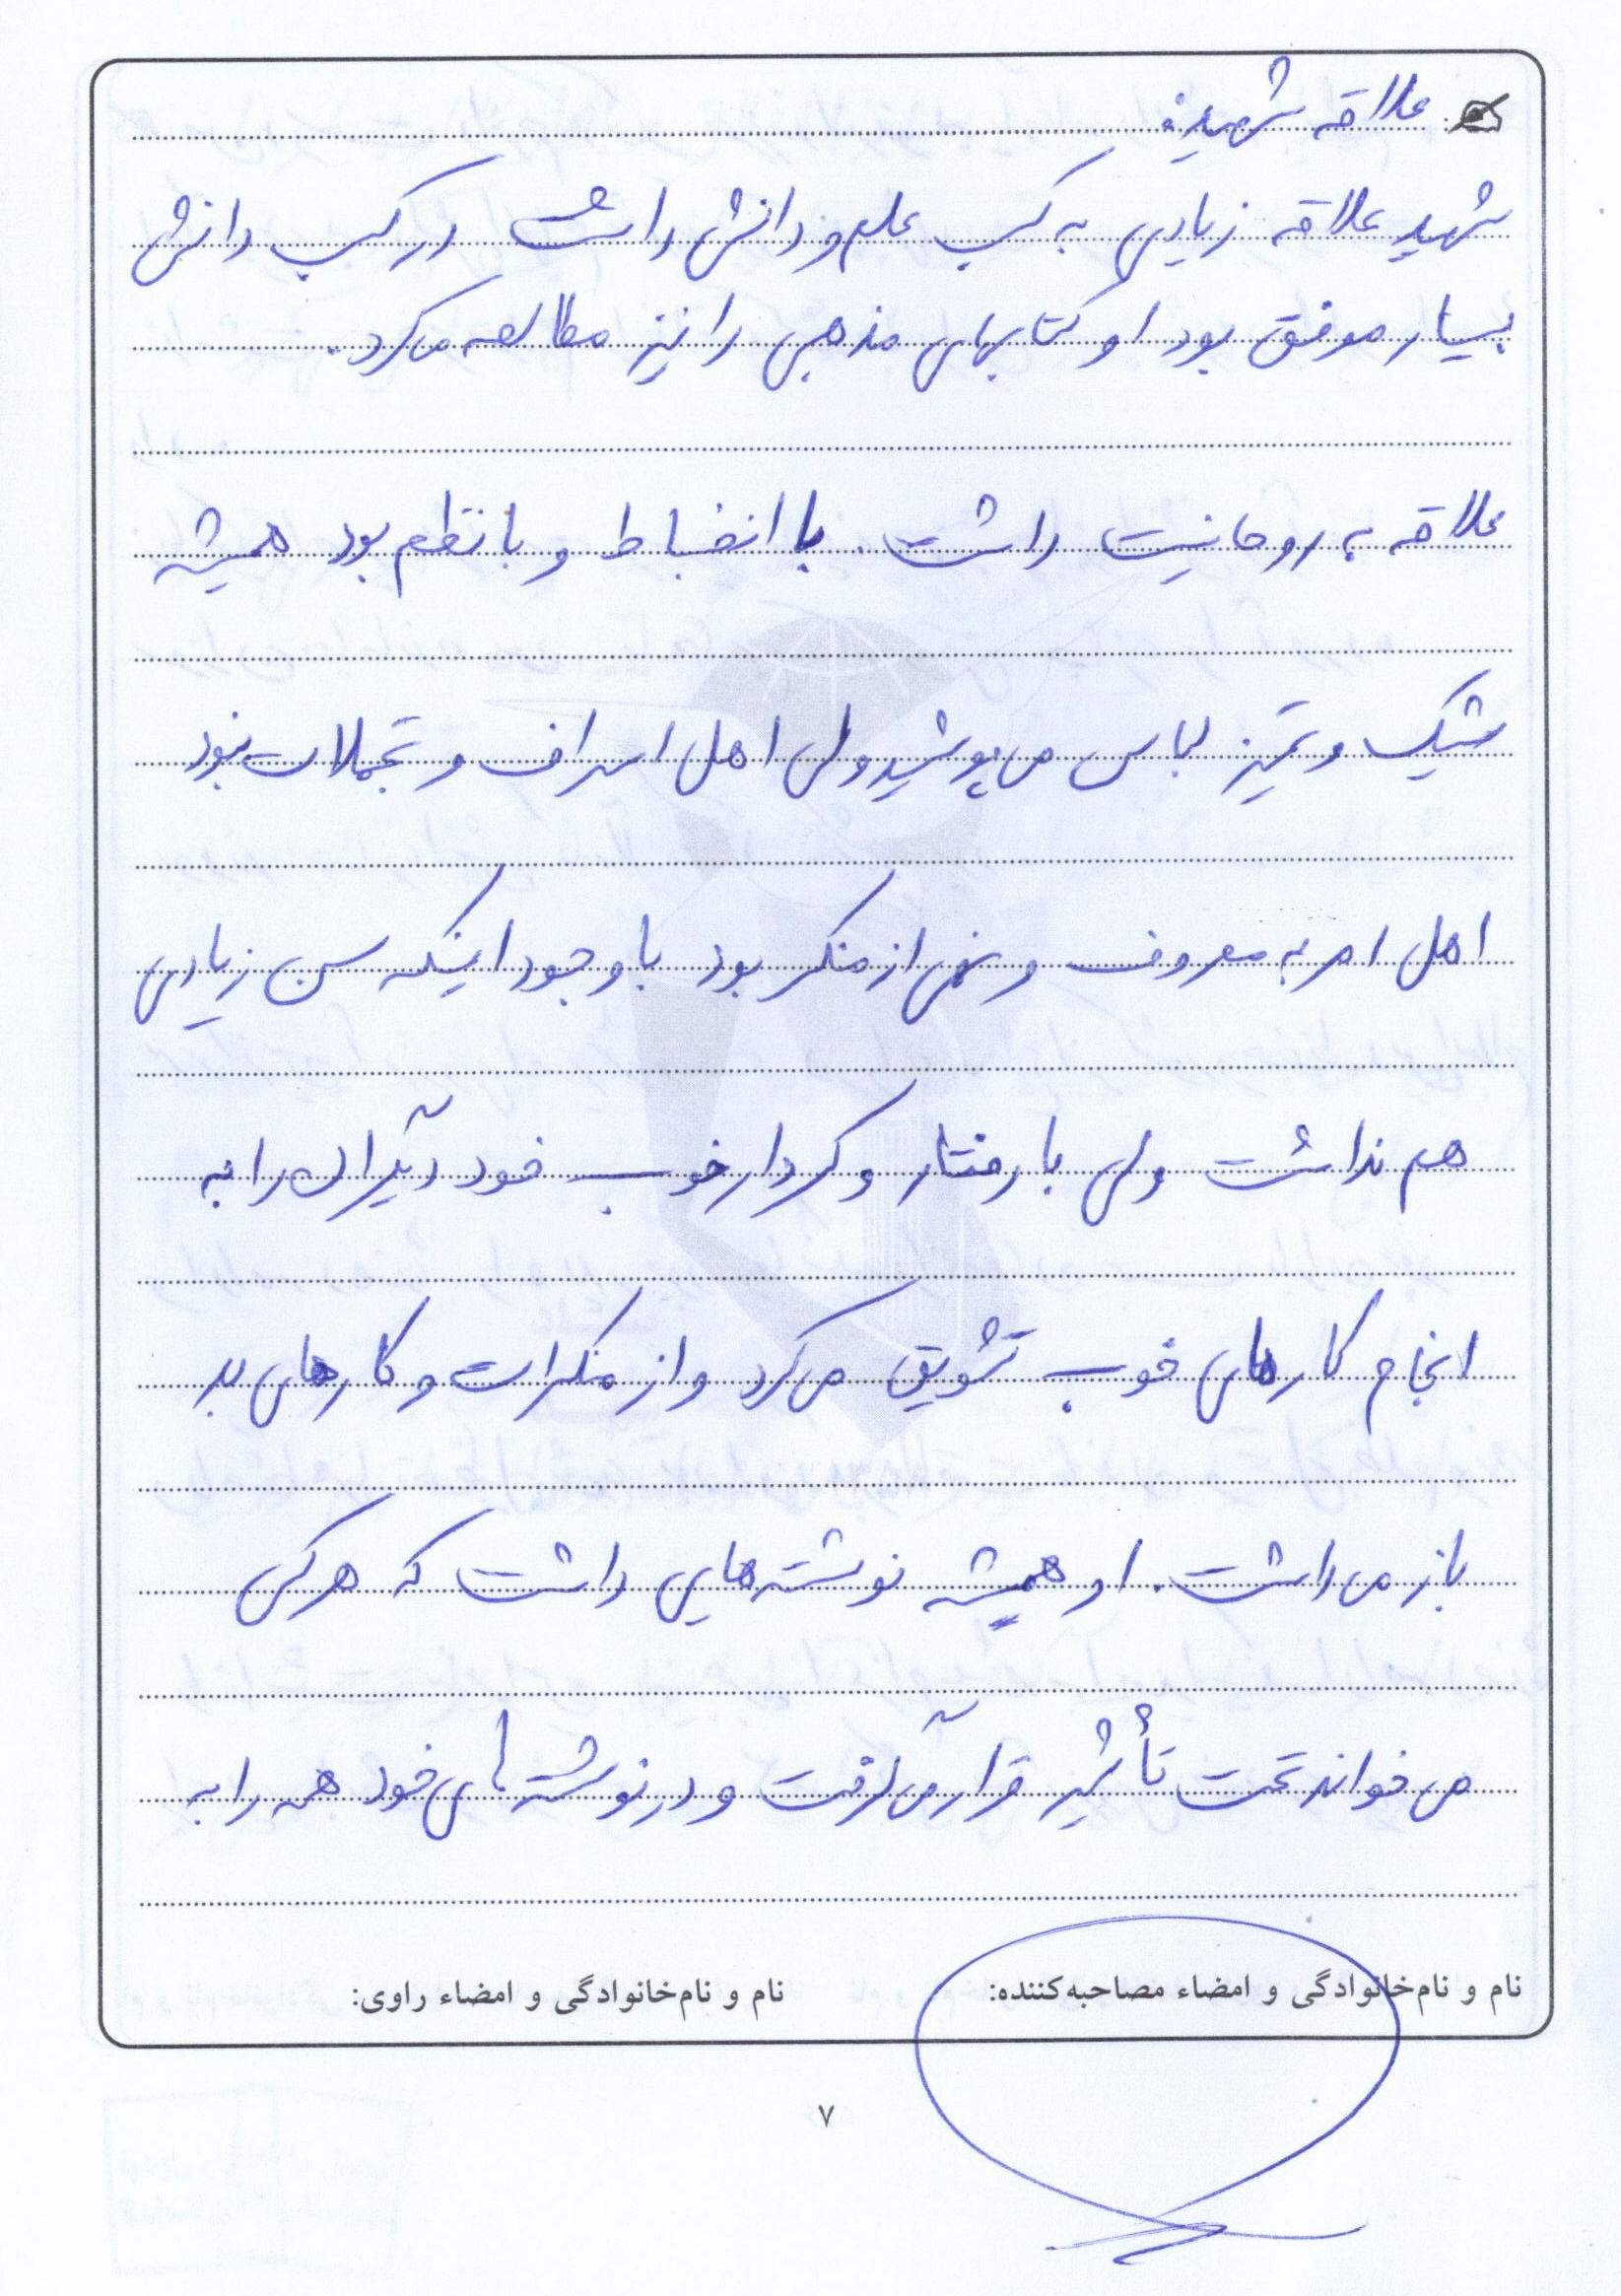 علاقه شهید:
شهید علاقه زیادی به کسب علم و دانش داشت در کسب دانش
بسیار موفق بود او کتابهای مذهبی را نیز مطالعه می‌کرد.
علاقه به روحانیت داشت. با انضباط و با نظم بود همیشه
شیک و تمیز لباس می‌پوشید ولی اهل اسراف و تجملات نبود
اهل امر به معروف و نهی از منکر بود با وجود اینکه سن زیادی
هم نداشت ولی با رفتار و کردار خوب خود دیگران را به
انجام کارهای خوب تشویق می‌کرد و از منکرات و کارهای بد
باز می‌داشت. او همیشه نوشته‌هایی داشت که هر کی
می‌خواند تحت تأثیر قرار می‌گرفت و در نوشته‌های خود همه را به
نام و نام‌خانوادگی و امضاء مصاحبه‌کننده: نام و نام‌خانوادگی و امضاء راوی:
۷